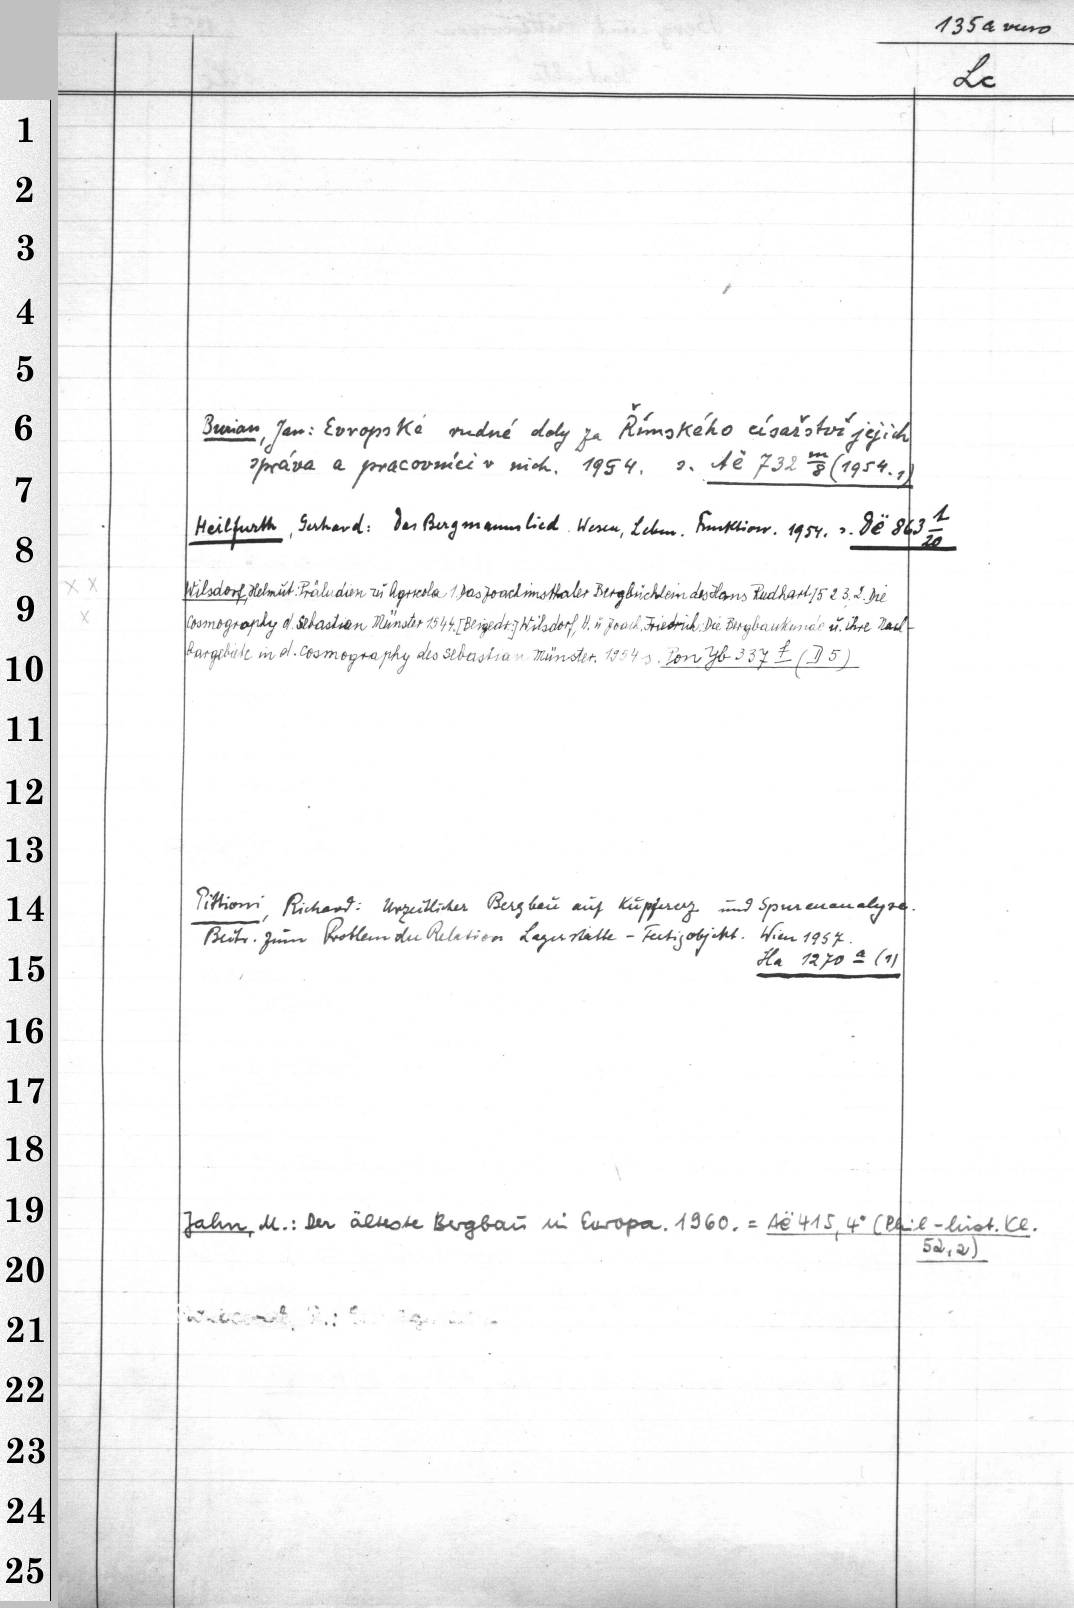 135a verso
Lc
1
2
3
4
5
6
Burian, Jan: Evropské rudné doly za Římského císařství jejich
správa a pracovníci v nich. 1954. s. Aë 732 m/8 (1954.1)
7
Heilfurth, Gerhard: Das Bergmannslied. Wesen, Leben. Funktion. 1954. s. Dë 863 1/20
8
Wilsdorf, Helmut: Präludien zu Agricola 1. Das Joachimsthaler Bergbüchlein des Hans Rudhart 1523, 2. Die
9
Cosmography d. Sebastian Münster 1544. [Beigedr.] Wilsdorf, H. u. Joach. Friedrich: Die Bergbaukunde u. ihre Nach-
bargebiete in d. Cosmography des Sebastian Münster. 1954 s. Pon Yb 337 f (D 5)
10
11
12
13
14
Pittioni, Richard: Urzeitlicher Bergbau auf Kupfererz und Spurenanalyse.
Beitr. zum Problem der Relation Lagerstätte – Fertigobjekt. Wien 1957.
15
Ha 1270 a (1)
16
17
18
19
Jahn, M.: Der älteste Bergbau in Europa. 1960. = Aë 415, 4° (Phil-hist. Kl.
52,2)
20
21
22
23
24
25